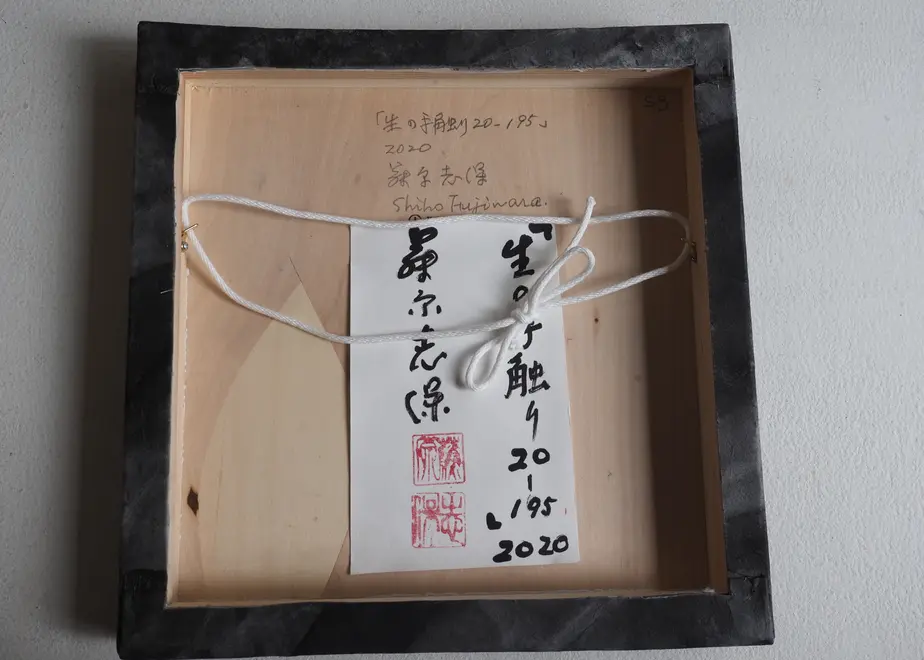 「生の手触り20-195」
2020
藤原志保
Shiho Fujiwara.
「生の手触り20-195」
2020
藤原志保
藤原
志保